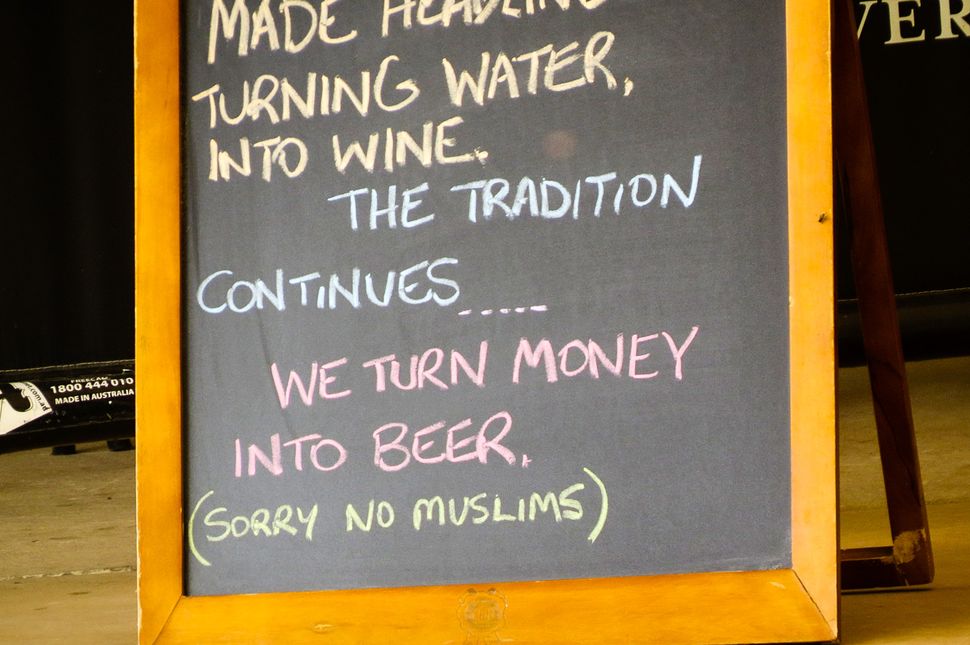 MADE HEADLINE
TURNING WATER,
INTO WINE.
THE TRADITION
CONTINUES.....
WE TURN MONEY
INTO BEER.
(SORRY NO MUSLIMS)
VER
FREECALL
1800 444 010
MADE IN AUSTRALIA